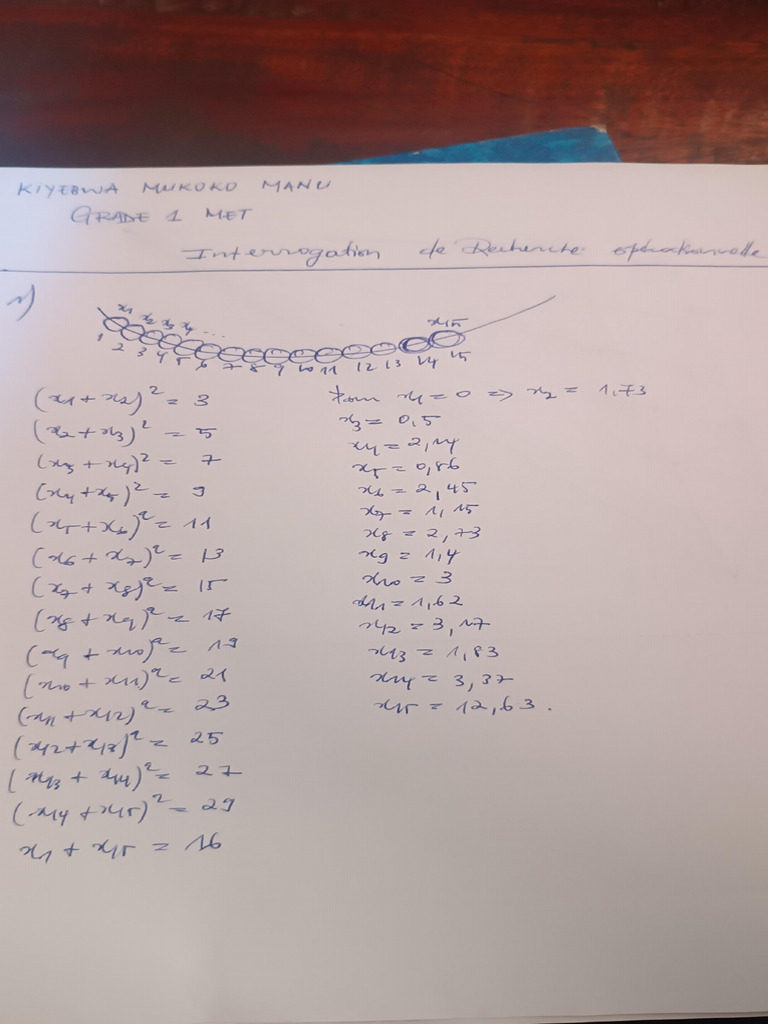 KIYEBWA MUKOKO MANU
GRADE 1 MET
Interrogation de Recherche opérationnelle
1)
x1 x2 x3 x4 ... x15
1 2 3 4 5 6 7 8 9 10 11 12 13 14 15
(x1 + x2)² = 3
(x2 + x3)² = 5
(x3 + x4)² = 7
(x4 + x5)² = 9
(x5 + x6)² = 11
(x6 + x7)² = 13
(x7 + x8)² = 15
(x8 + x9)² = 17
(x9 + x10)² = 19
(x10 + x11)² = 21
(x11 + x12)² = 23
(x12 + x13)² = 25
(x13 + x14)² = 27
(x14 + x15)² = 29
x1 + x15 = 16
Pour x1 = 0 => x2 = 1,73
x3 = 0,5
x4 = 2,14
x5 = 0,86
x6 = 2,45
x7 = 1,15
x8 = 2,73
x9 = 1,4
x10 = 3
x11 = 1,62
x12 = 3,17
x13 = 1,83
x14 = 3,37
x15 = 12,63.